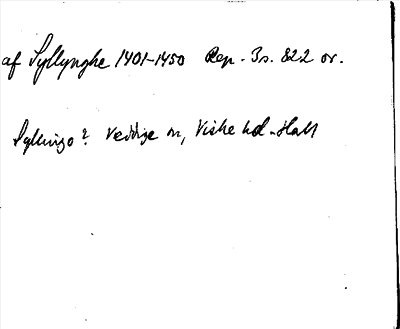 af Syllynghe 1401-1450 Rep. 3s. 822 or.
Syllinge? Veddige sn, Viske hd. Hall